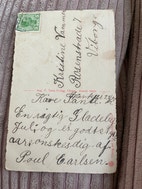 Kristine
Rosenstræde 7
Viborg
Kære Tante K
En rigtig Glædelig
Jul og et godt Ny-
aar ønskes dig af
Poul Carlsen